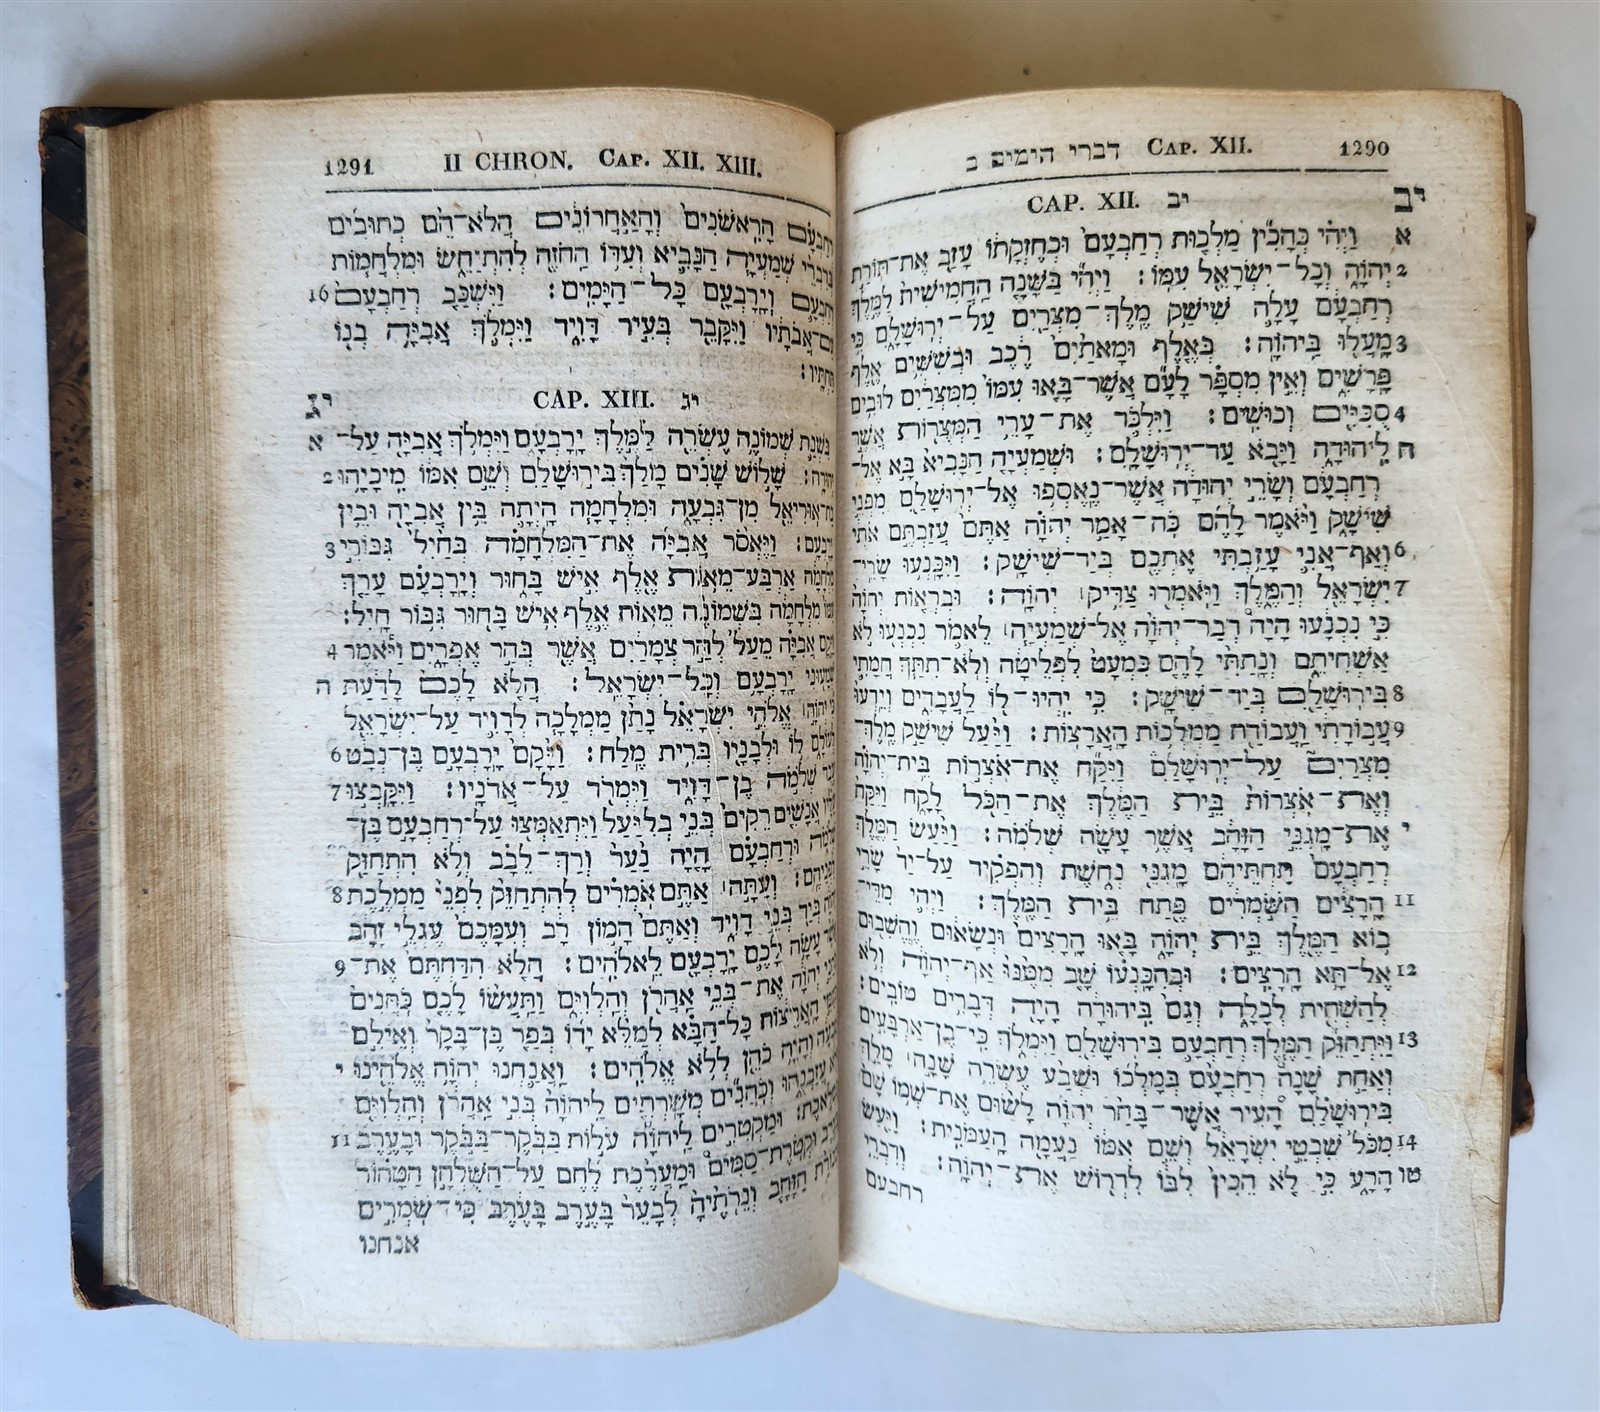 דברי הימים ב CAP. XII. 1290
CAP. XII. יב
יב
א ויהי כהכין מלכות רחבעם וכחזקתו עזב את־תורת
2 יהוה וכל־ישראל עמו: ויהי בשנה החמישית למלך
רחבעם עלה שישק מלך־מצרים על־ירושלם כי
3 מעלו ביהוה: באלף ומאתים רכב ובששים אלף
פרשים ואין מספר לעם אשר־באו עמו ממצרים לובים
4 סכיים וכושים: וילכד את־ערי המצרות אשר
ה ליהודה ויבא עד־ירושלם: ושמעיה הנביא בא אל־
רחבעם ושרי יהודה אשר־נאספו אל־ירושלם מפני
שישק ויאמר להם כה־אמר יהוה אתם עזבתם אתי
6 ואף־אני עזבתי אתכם ביד־שישק: ויכנעו שרי־
7 ישראל והמלך ויאמרו צדיק׀ יהוה: ובראות יהוה
כי נכנעו היה דבר־יהוה אל־שמעיה׀ לאמר נכנעו לא
אשחיתם ונתתי להם כמעט לפליטה ולא־תתך חמתי
8 בירושלם ביד־שישק: כי יהיו־לו לעבדים וידעו
9 עבודתי ועבודת ממלכות הארצות: ויעל שישק מלך־
מצרים על־ירושלם ויקח את־אצרות בית־יהוה
ואת־אצרות בית המלך את־הכל לקח ויקח
י את־מגני הזהב אשר עשה שלמה: ויעש המלך
רחבעם תחתיהם מגני נחשת והפקיד על־יד שרי
11 הרצים השמרים פתח בית המלך: ויהי מדי־
בוא המלך בית יהוה באו הרצים ונשאום והשבום
12 אל־תא הרצים: ובהכנעו שב ממנו אף־יהוה ולא
להשחית לכלה וגם ביהודה היה דברים טובים:
13 ויתחזק המלך רחבעם בירושלם וימלך כי־בן־ארבעים
ואחת שנה רחבעם במלכו ושבע עשרה שנה׀ מלך
בירושלם העיר אשר־בחר יהוה לשום את־שמו שם
14 מכל שבטי ישראל ושם אמו נעמה העמנית: ויעש
טו הרע כי לא הכין לבו לדרוש את־יהוה: ודברי
רחבעם
1291 II CHRON. CAP. XII. XIII.
רחבעם הראשנים והאחרונים הלא־הם כתובים
בדברי שמעיה הנביא ועדו החזה להתיחש ומלחמות
16 רחבעם וירבעם כל־הימים: וישכב רחבעם
עם־אבתיו ויקבר בעיר דויד וימלך אביה בנו
תחתיו:
CAP. XIII. יג
יג
א בשנת שמונה עשרה למלך ירבעם וימלך אביה על־
2 יהודה: שלוש שנים מלך בירושלם ושם אמו מיכיהו
בת־אוריאל מן־גבעה ומלחמה היתה בין אביה ובין
3 ירבעם: ויאסר אביה את־המלחמה בחיל גבורי
מלחמה ארבע־מאות אלף איש בחור וירבעם ערך
עמו מלחמה בשמונה מאות אלף איש בחור גבור חיל:
4 ויקם אביה מעל להר צמרים אשר בהר אפרים ויאמר
ה שמעוני ירבעם וכל־ישראל: הלא לכם לדעת
כי יהוה׀ אלהי ישראל נתן ממלכה לדויד על־ישראל
6 לעולם לו ולבניו ברית מלח: ויקם ירבעם בן־נבט
7 עבד שלמה בן־דויד וימרד על־אדניו: ויקבצו
עליו אנשים רקים בני בליעל ויתאמצו על־רחבעם בן־
שלמה ורחבעם היה נער ורך־לבב ולא התחזק
8 לפניהם: ועתה׀ אתם אמרים להתחזק לפני ממלכת
יהוה ביד בני דויד ואתם המון רב ועמכם עגלי זהב
9 אשר עשה לכם ירבעם לאלהים: הלא הדחתם את־
כהני יהוה את־בני אהרן והלוים ותעשו לכם כהנים
כעמי הארצות כל־הבא למלא ידו בפר בן־בקר ואילם
י שבעה והיה כהן ללא אלהים: ואנחנו יהוה אלהינו
ולא עזבנהו וכהנים משרתים ליהוה בני אהרן והלוים
11 במלאכת: ומקטרים ליהוה עלות בבקר־בבקר ובערב־
בערב וקטרת־סמים ומערכת לחם על־השלחן הטהור
ומנורת הזהב ונרתיה לבער בערב בערב כי־שמרים
אנחנו